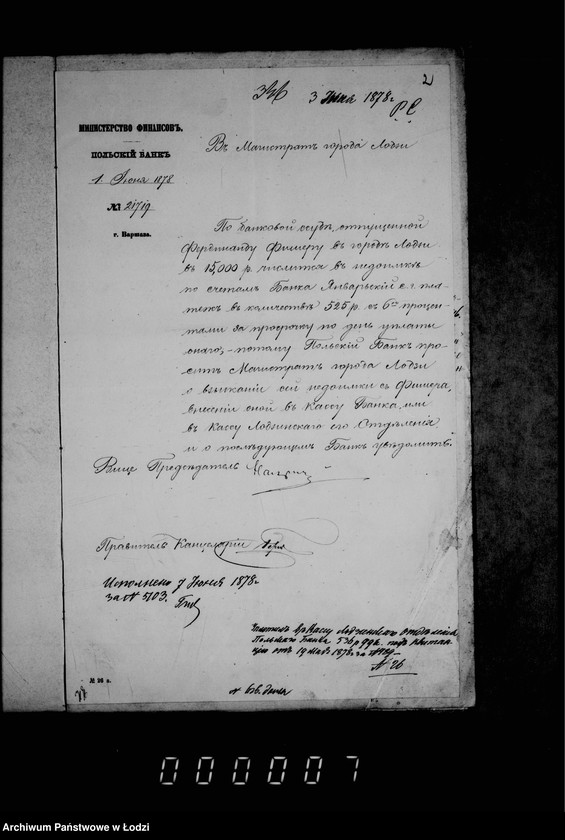 2
3 Июня 1878 г
МИНИСТЕРСТВО ФИНАНСОВЪ.
ПОЛЬСКІЙ БАНКЪ
1 Июня 1878
№ 21719
г. Варшава.
Въ Магистратъ города Лодзи
По банковой ссудѣ, отпущенной
Фердинанду Фишеру въ городѣ Лодзи
въ 15,000 р. числится въ недоимкѣ
по счетамъ Банка Январьскій с. г. пла-
тежъ въ количествѣ 525 р. съ 6% процен-
тами за просрочку по день уплаты
онаго, – потому Польскій Банкъ про-
ситъ Магистратъ города Лодзи
о взысканіи сей недоимки съ Фишера,
внесеніи оной въ Кассу Банка, или
въ Кассу Лодзинскаго его Отдѣленія
и о послѣдующемъ Банкъ увѣдомить.
Вице Предсѣдатель
Правитель Канцеляріи
Исполнено 7 Июня 1878 г
за № 5703.
въ Кассу Лодзенскаго отдѣленія
Польскаго Банка подъ квитан-
цію отъ 19 1878 г. за
№ 26
№ 26 а.
000007
Archiwum Państwowe w Łodzi